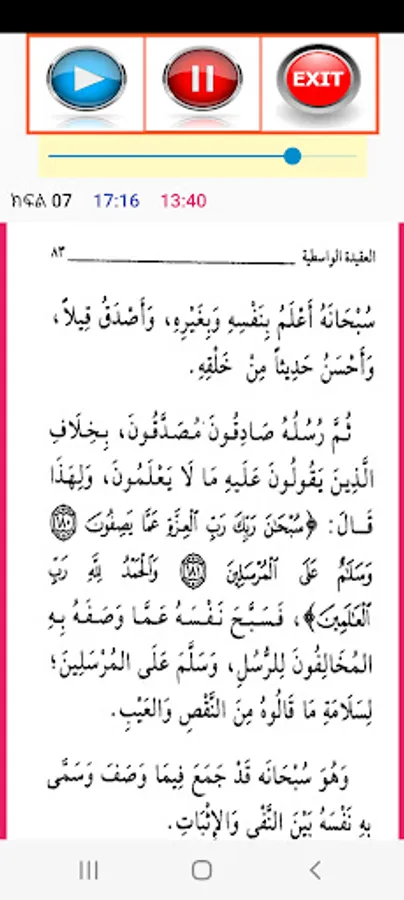 EXIT
ክፍል 07 17:16 13:40
العقيدة الواسطية ٨٣
سُبْحَانَهُ أَعْلَمُ بِنَفْسِهِ وَبِغَيْرِهِ، وَأَصْدَقُ قِيلاً،
وَأَحْسَنُ حَدِيثاً مِنْ خَلْقِهِ.
ثُمَّ رُسُلُهُ صَادِقُونَ مُصَدَّقُونَ، بِخِلَافِ
الَّذِينَ يَقُولُونَ عَلَيهِ مَا لَا يَعْلَمُونَ، وَلِهَذَا
قَالَ: ﴿سُبْحَٰنَ رَبِّكَ رَبِّ الْعِزَّةِ عَمَّا يَصِفُونَ ١٨٠
وَسَلَٰمٌ عَلَى الْمُرْسَلِينَ ١٨١ وَالْحَمْدُ لِلَّهِ رَبِّ
الْعَٰلَمِينَ﴾، فَسَبَّحَ نَفْسَهُ عَمَّا وَصَفَهُ بِهِ
المُخَالِفُونَ لِلرُّسُلِ، وَسَلَّمَ عَلَى المُرْسَلِينَ؛
لِسَلَامَةِ مَا قَالُوهُ مِنَ النَّقْصِ وَالعَيْبِ.
وَهُوَ سُبْحَانَه قَدْ جَمَعَ فِيمَا وَصَفَ وَسَمَّى
بِهِ نَفْسَهُ بَيْنَ النَّفْي وَالإِثْبَاتِ.